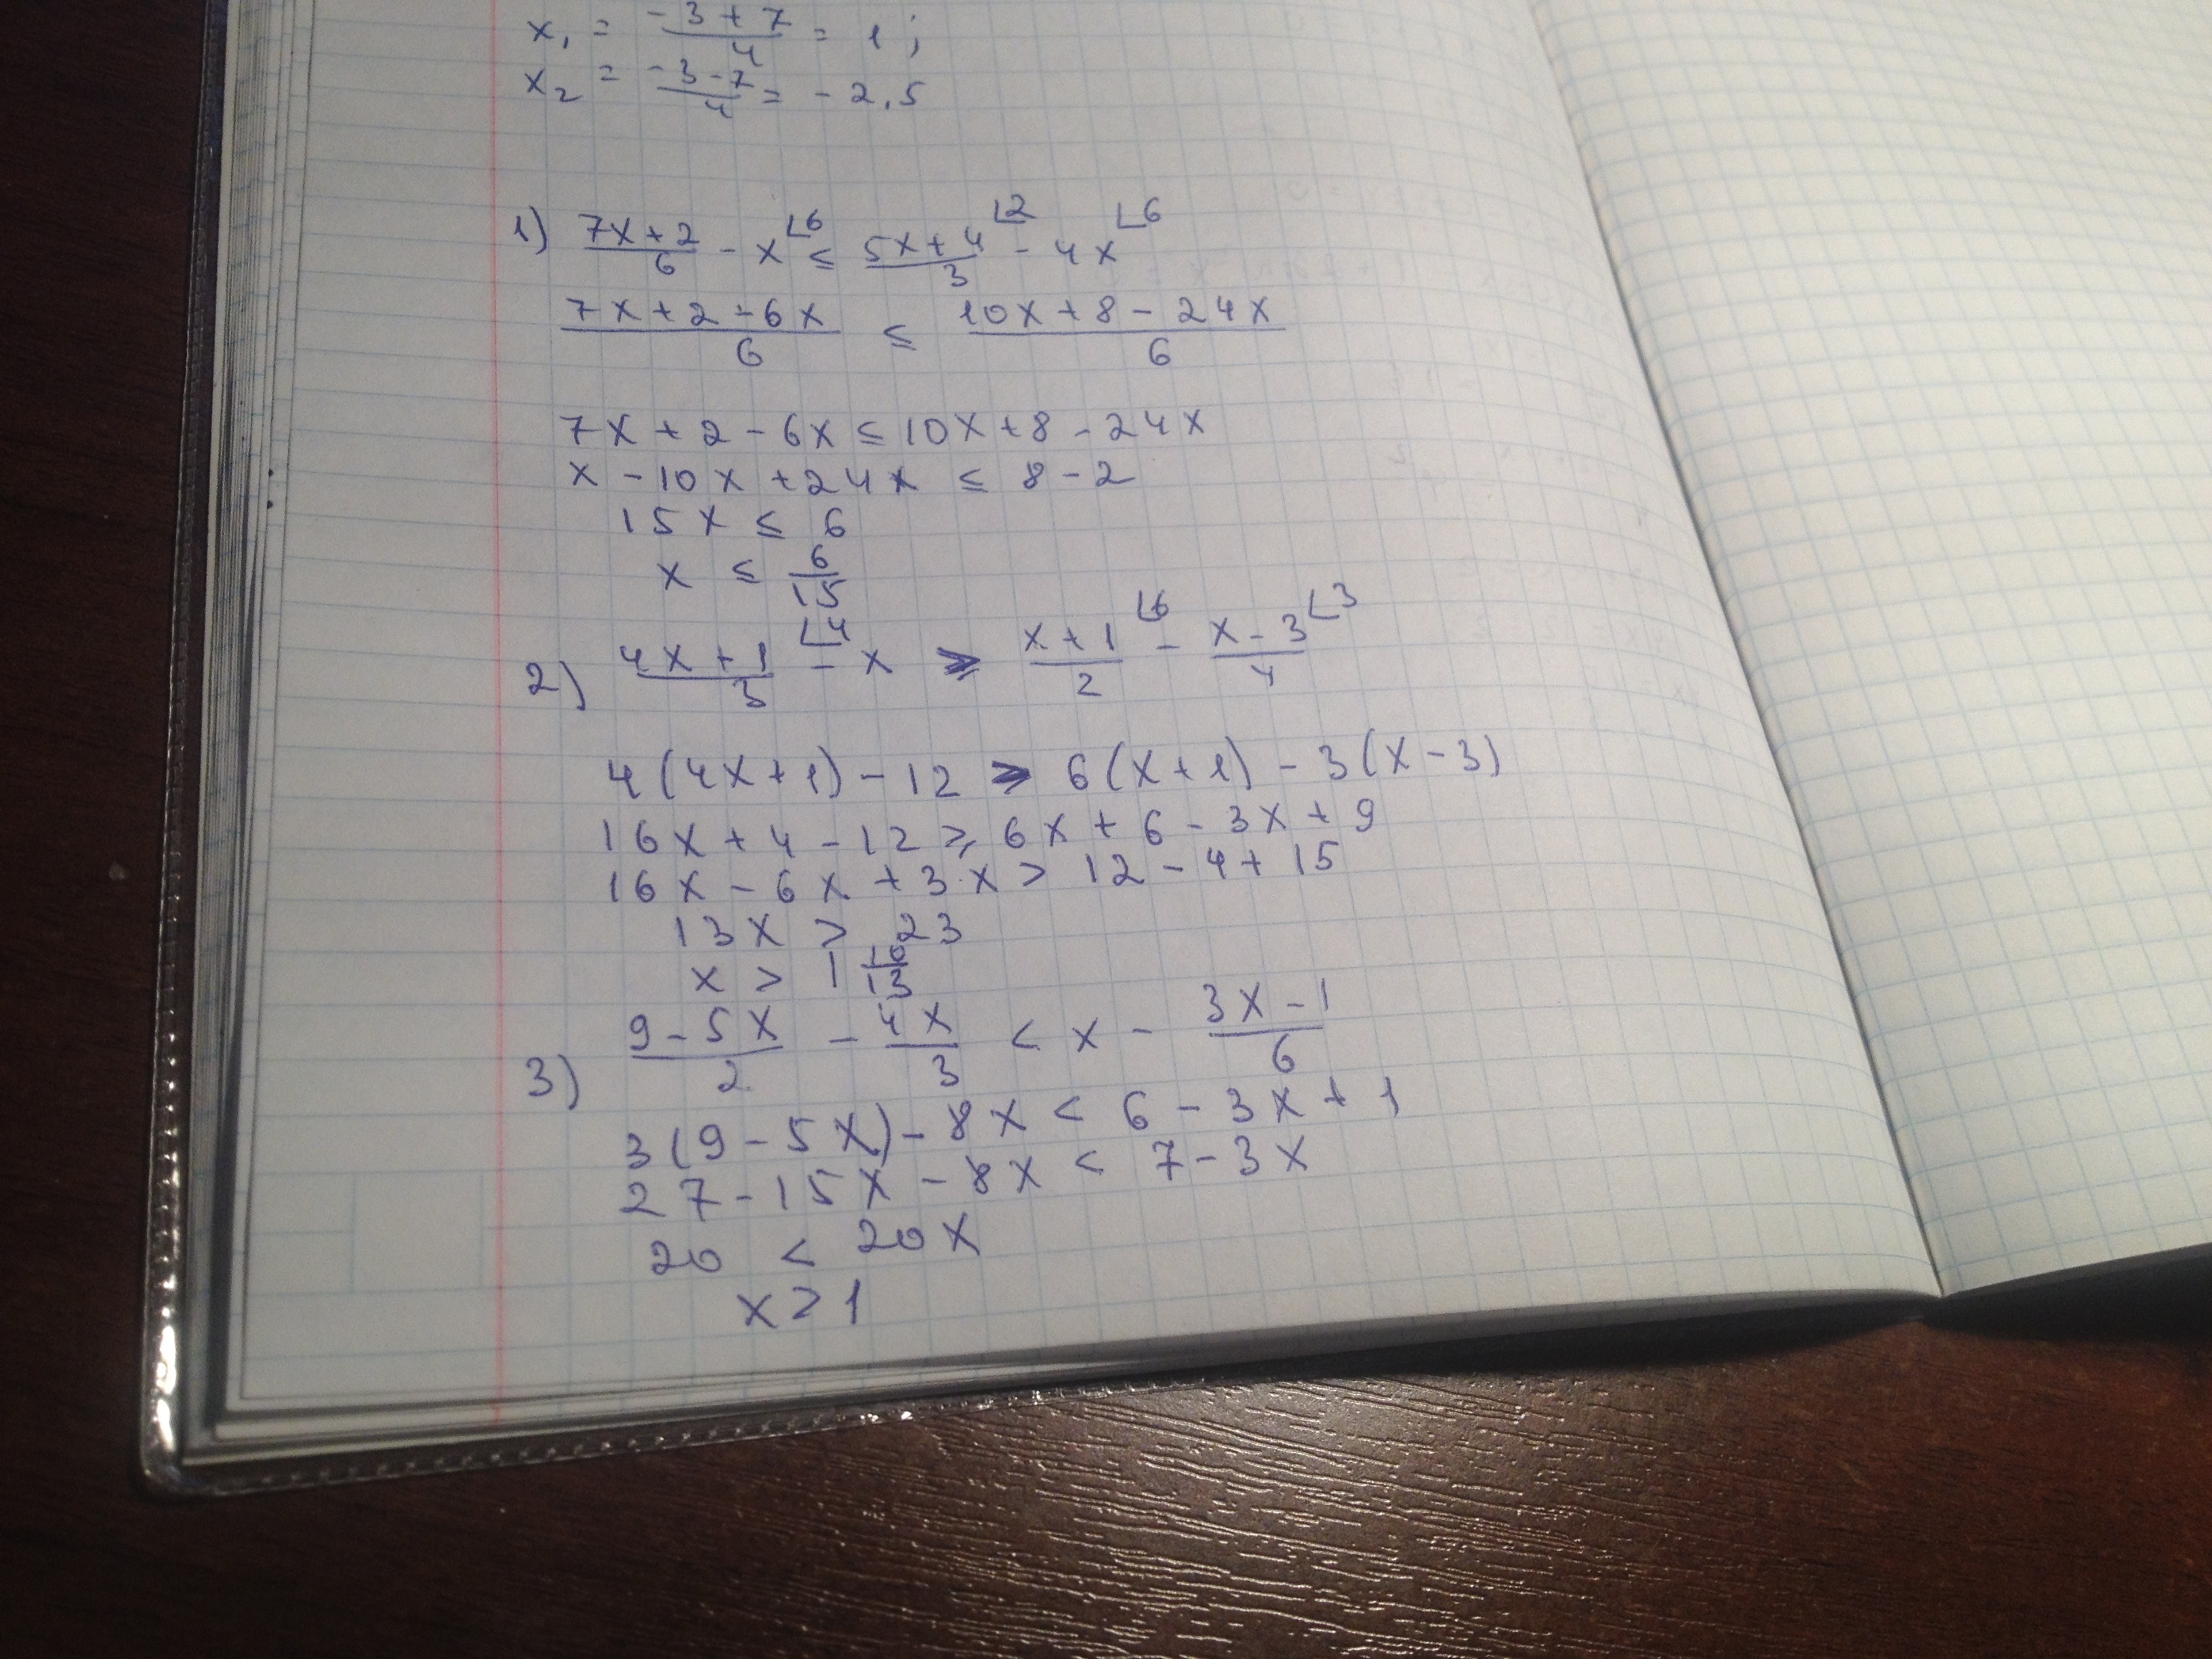 x₁ = (-3+7)/4 = 1;
x₂ = (-3-7)/4 = -2,5
1) (7x+2)/6 - x⌊6 ≤ (5x+4)/3 ⌊2 - 4x⌊6
(7x+2-6x)/6 ≤ (10x+8-24x)/6
7x+2-6x ≤ 10x+8-24x
x-10x+24x ≤ 8-2
15x ≤ 6
x ≤ 6/15
2) (4x+1)/3 ⌊4 - x ≥ (x+1)/2 ⌊6 - (x-3)/4 ⌊3
4(4x+1)-12 ≥ 6(x+1)-3(x-3)
16x+4-12 ≥ 6x+6-3x+9
16x-6x+3x > 12-4+15
13x > 23
x > 1 10/13
3) (9-5x)/2 - 4x/3 < x - (3x-1)/6
3(9-5x)-8x < 6-3x+1
27-15x-8x < 7-3x
20 < 20x
x > 1